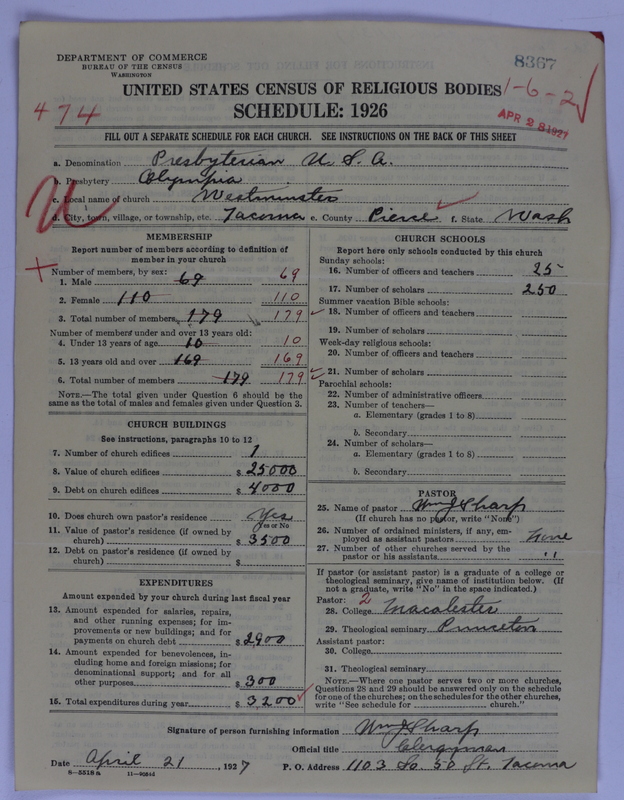 DEPARTMENT OF COMMERCE
BUREAU OF THE CENSUS
WASHINGTON
8367
UNITED STATES CENSUS OF RELIGIOUS BODIES
1-6-2
474
SCHEDULE: 1926
APR 28 1927
FILL OUT A SEPARATE SCHEDULE FOR EACH CHURCH. SEE INSTRUCTIONS ON THE BACK OF THIS SHEET
a. Denomination Presbyterian U. S. A.
b. Presbytery Olympia
c. Local name of church Westminster
U
d. City, town, village, or township, etc. Tacoma e. County Pierce f. State Wash
MEMBERSHIP
Report number of members according to definition of
member in your church
Number of members, by sex:
1. Male 69 69
2. Female 110 110
3. Total number of members 179 179
Number of members under and over 13 years old:
4. Under 13 years of age 10 10
5. 13 years old and over 169 169
6. Total number of members 179 179
NOTE.—The total given under Question 6 should be
same as the total of males and females given under Question 3.
CHURCH BUILDINGS
See instructions, paragraphs 10 to 12
7. Number of church edifices 1
8. Value of church edifices $ 25000
9. Debt on church edifices $ 4000
10. Does church own pastor's residence Yes
Yes or No
11. Value of pastor's residence (if owned by
church) $ 3500
12. Debt on pastor's residence (if owned by
church) $
EXPENDITURES
Amount expended by your church during last fiscal year
13. Amount expended for salaries, repairs,
and other running expenses; for im-
provements or new buildings; and for
payments on church debt $ 2900
14. Amount expended for benevolences, in-
cluding home and foreign missions; for
denominational support; and for all
other purposes $ 300
15. Total expenditures during year $ 3200
CHURCH SCHOOLS
Report here only schools conducted by this church
Sunday schools:
16. Number of officers and teachers 25
17. Number of scholars 250
Summer vacation Bible schools:
18. Number of officers and teachers
19. Number of scholars
Week-day religious schools:
20. Number of officers and teachers
21. Number of scholars
Parochial schools:
22. Number of administrative officers
23. Number of teachers—
a. Elementary (grades 1 to 8)
b. Secondary
24. Number of scholars—
a. Elementary (grades 1 to 8)
b. Secondary
PASTOR
25. Name of pastor Wm J Sharp
(If church has no pastor, write "None")
26. Number of ordained ministers, if any, em-
ployed as assistant pastors none
27. Number of other churches served by the
pastor or his assistants "
If pastor (or assistant pastor) is a graduate of a college or
theological seminary, give name of institution below. (If
not a graduate, write "No" in the space indicated.)
Pastor: 2
28. College Macalester
29. Theological seminary Princeton
Assistant pastor:
30. College
31. Theological seminary
NOTE.—Where one pastor serves two or more churches,
Questions 28 and 29 should be answered only on the schedule
for one of the churches; on the schedules for the other churches,
write "See schedule for church."
Signature of person furnishing information Wm J Sharp
Official title Clergyman
Date April 21, 1927 P. O. Address 1103 So. 50 St. Tacoma